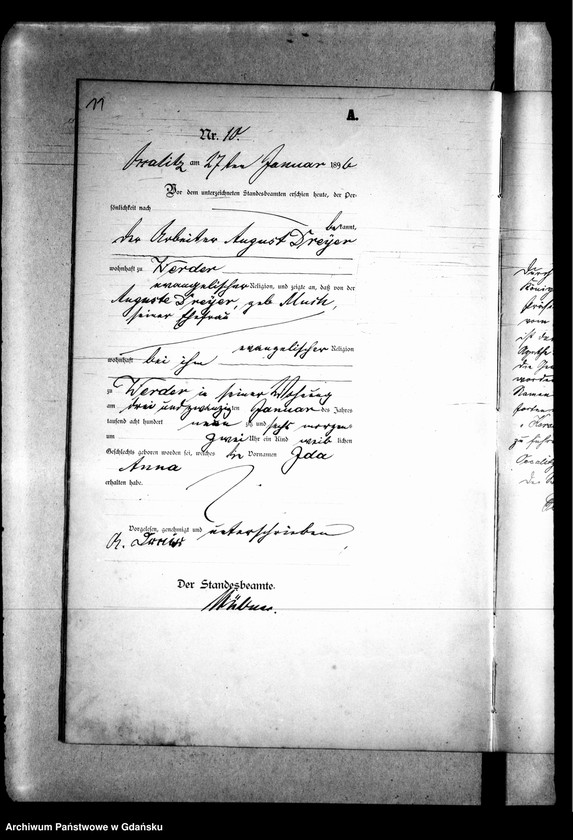 11
A.
Nr. 10.
am 27ten Januar 1896
Vor dem unterzeichneten Standesbeamten erschien heute, der Per-
sönlichkeit nach
bekannt,
der Arbeiter August Dreyer
wohnhaft zu Werder
evangelischer Religion, und zeigte an, daß von der
Auguste Dreyer, geb.
seiner Ehefrau
evangelischer Religion
wohnhaft bei ihm
zu Werder in seiner Wohnung
am drei und zwanzigten Januar des Jahres
tausend acht hundert neun zig und sechs morgens
um zwei Uhr ein Kind weib lichen
Geschlechts geboren worden sei, welches die Vornamen Ida
Anna
erhalten habe.
Vorgelesen, genehmigt und unterschrieben
A.
Der Standesbeamte.
Archiwum Państwowe w Gdańsku